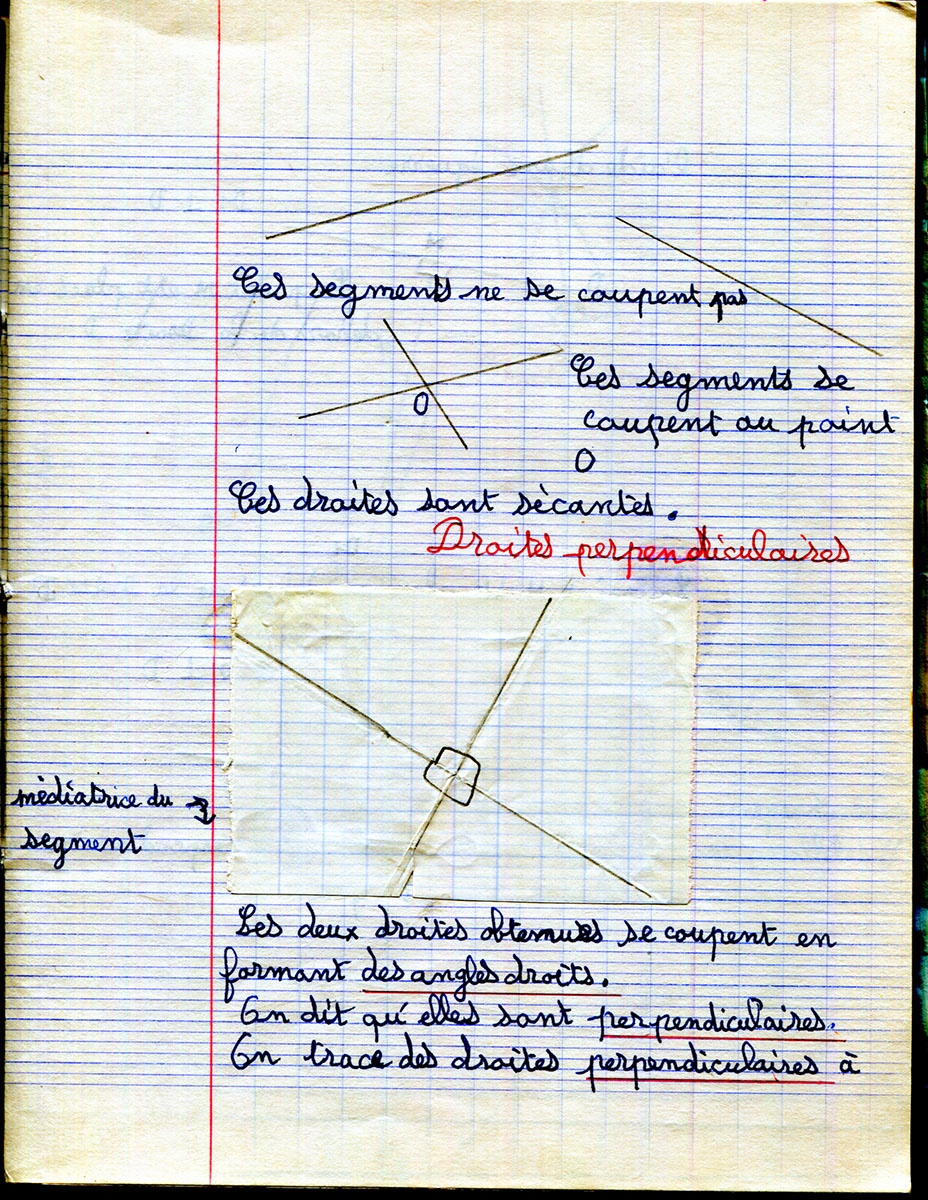 Ces segments ne se coupent pas
O
Ces segments se
coupent au point
O
Ces droites sont sècantes.
Droites perpendiculaires
médiatrice du
segment
Les deux droites obtenues se coupent en
formant des angles droits.
On dit qu'elles sont perpendiculaires.
On trace des droites perpendiculaires à